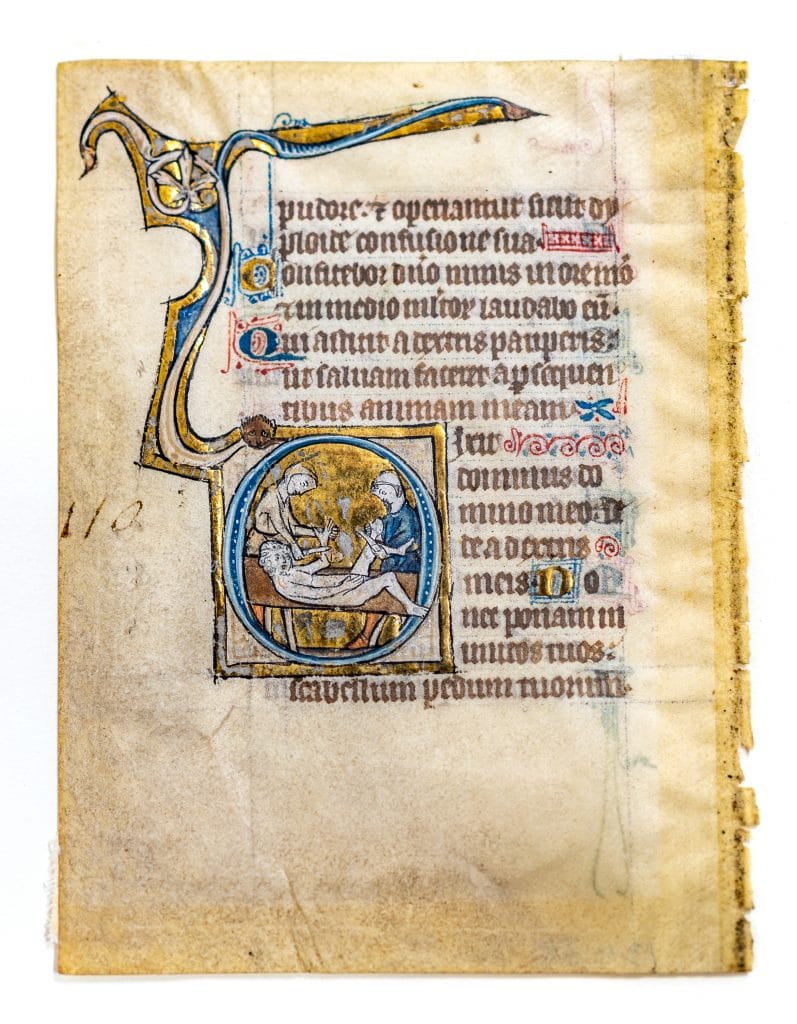 pudore. ⁊ operiantur sicut dy
ploide confusione sua.
Confitebor dño nimis in ore mō
⁊ in medio mltoꝝ laudabo eū.
Qui astitit a dextris pauperis:
ut saluam faceret a ꝑsequen
tibus animam meam
Dixit
dominus do
mino meo. se
110
de a dextris
meis Do
nec ponam ini
micos tuos:
scabellum pedum tuorum.